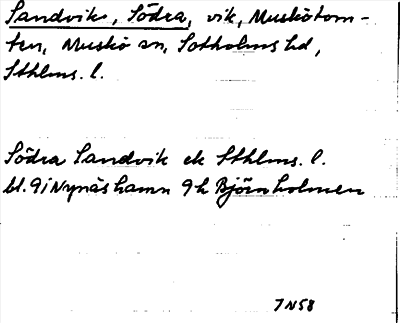 Sandvik, Södra, vik, Muskötom-
ten, Muskö sn, Sotholms hd,
Sthlms. l.
Södra Sandvik ek Sthlms. l.
bl. 9i Nynäshamn 9h Björnholmen
7N58